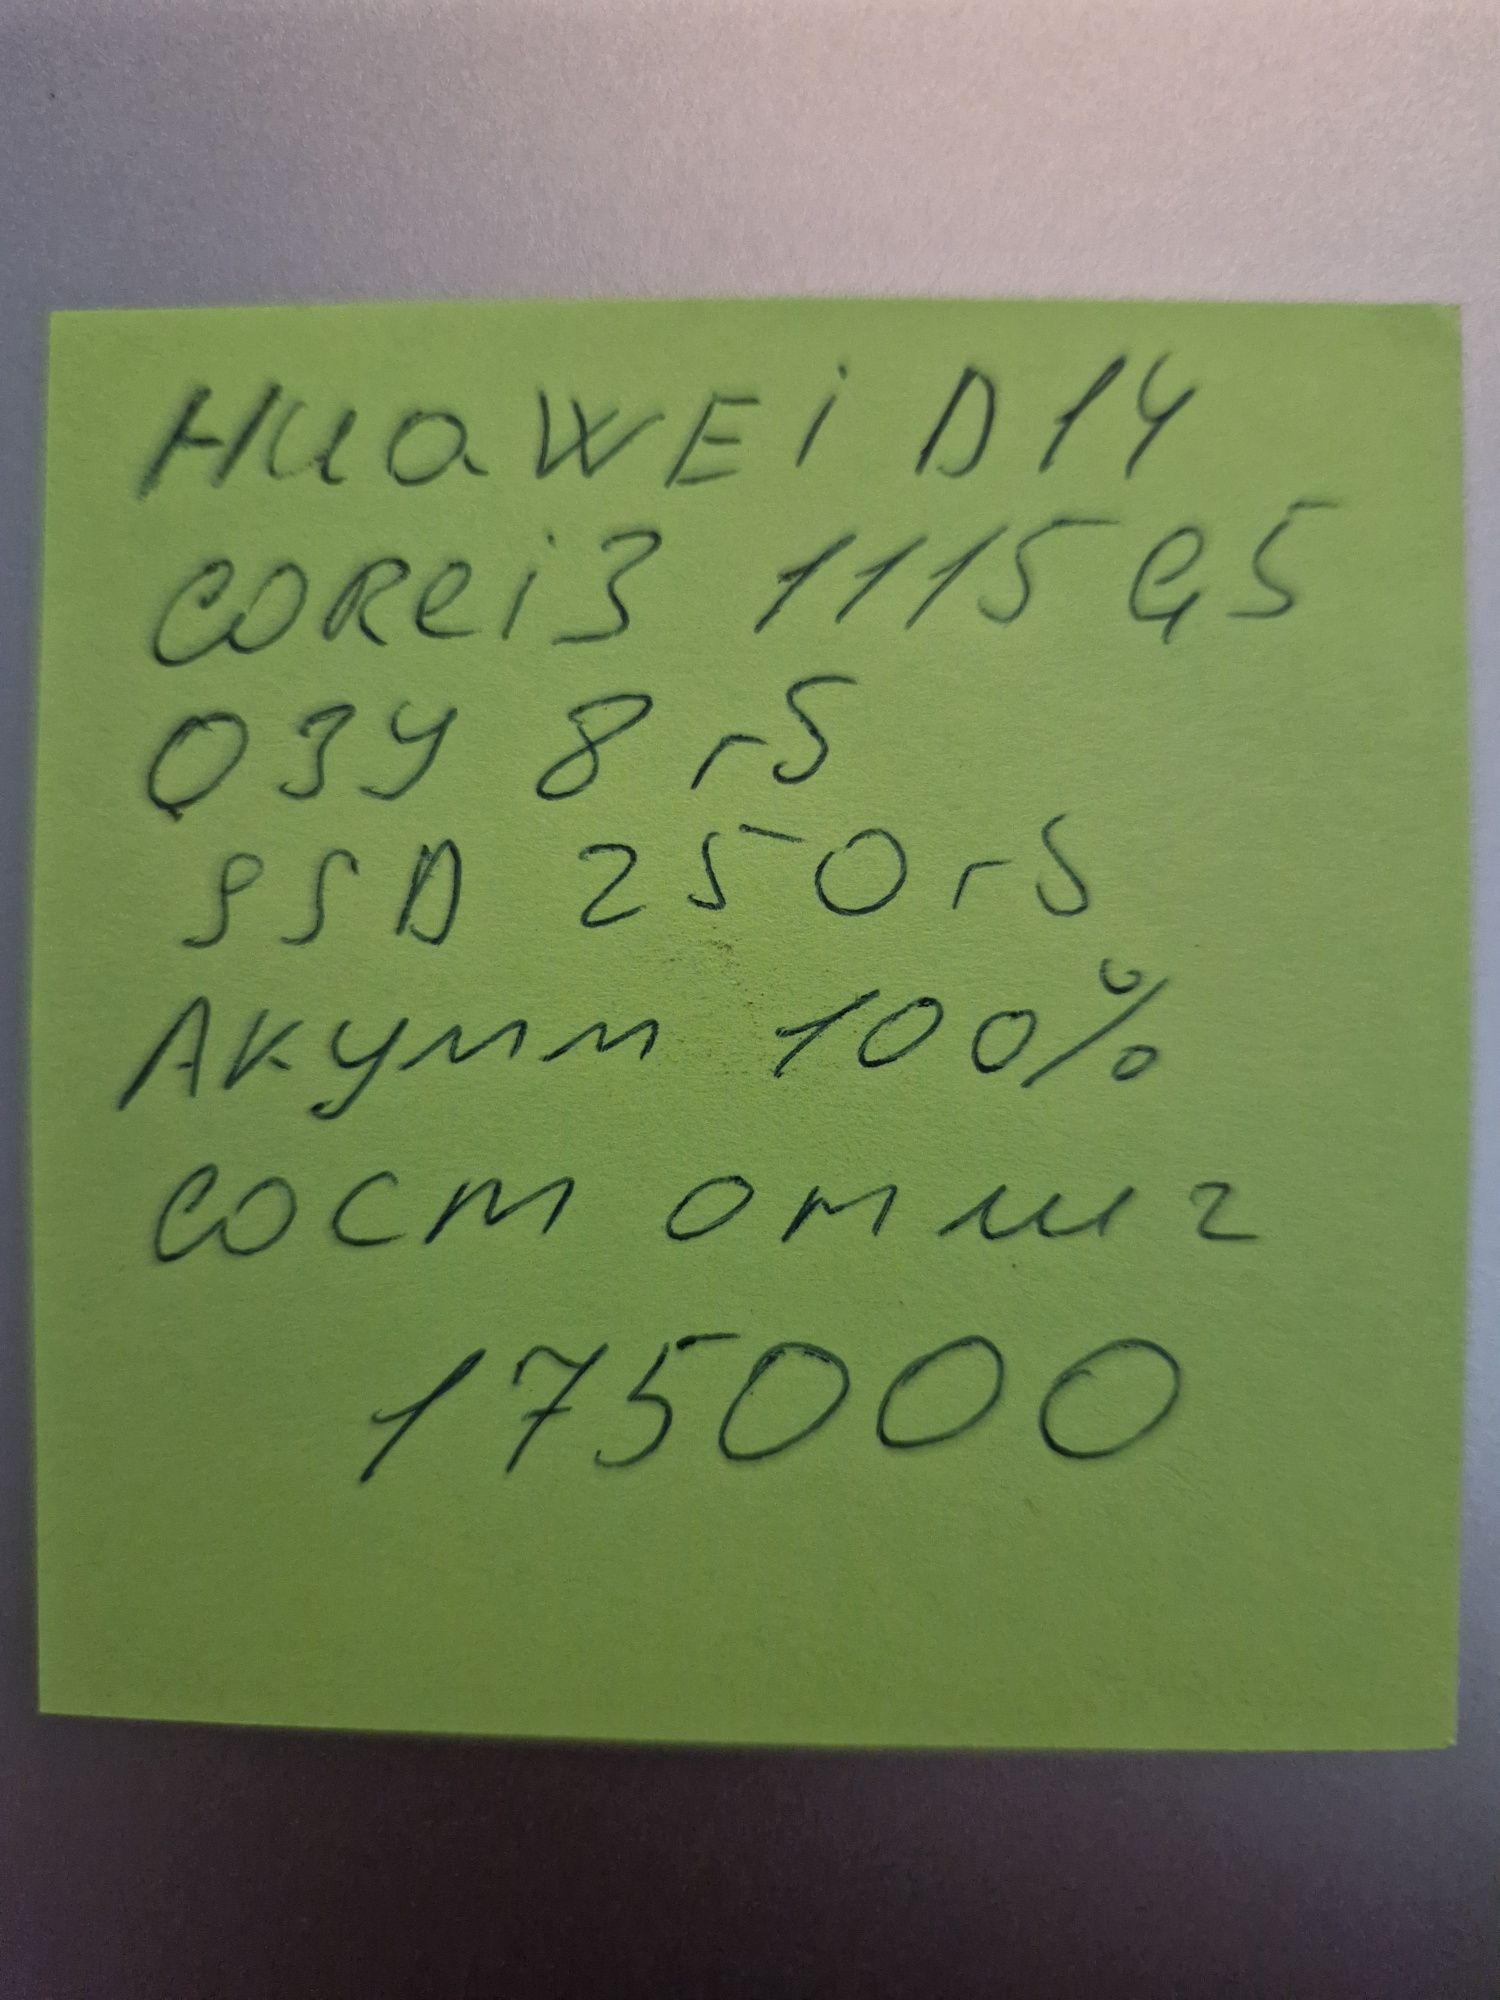 HUAWEi D14
COREi3 1115G5
ОЗУ 8 гБ
SSD 250 гБ
Акумм 100%
сост отлич
175000